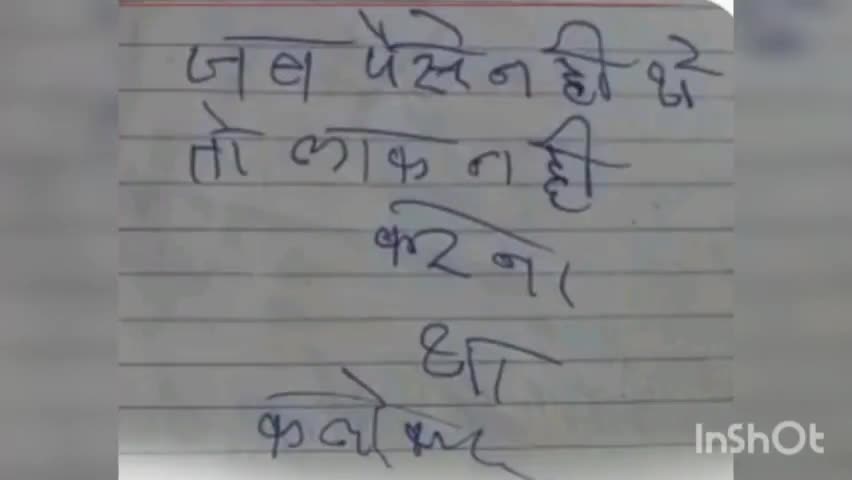 जब पैसे नही थे
तो लाक नही
करना
था
कलेक्टर
InShOt